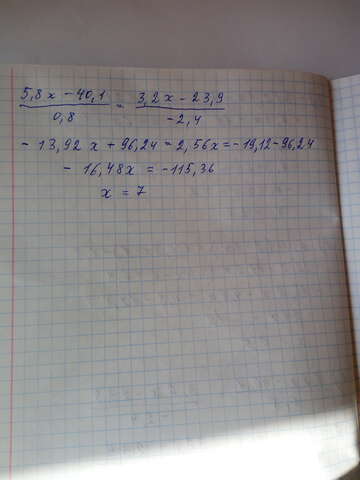 5,8x - 40,1 / 0,8 = 3,2x - 23,9 / -2,4
- 13,92 x + 96,24 = 2,56x = -19,12 - 96,24
- 16,48x = -115,36
x = 7